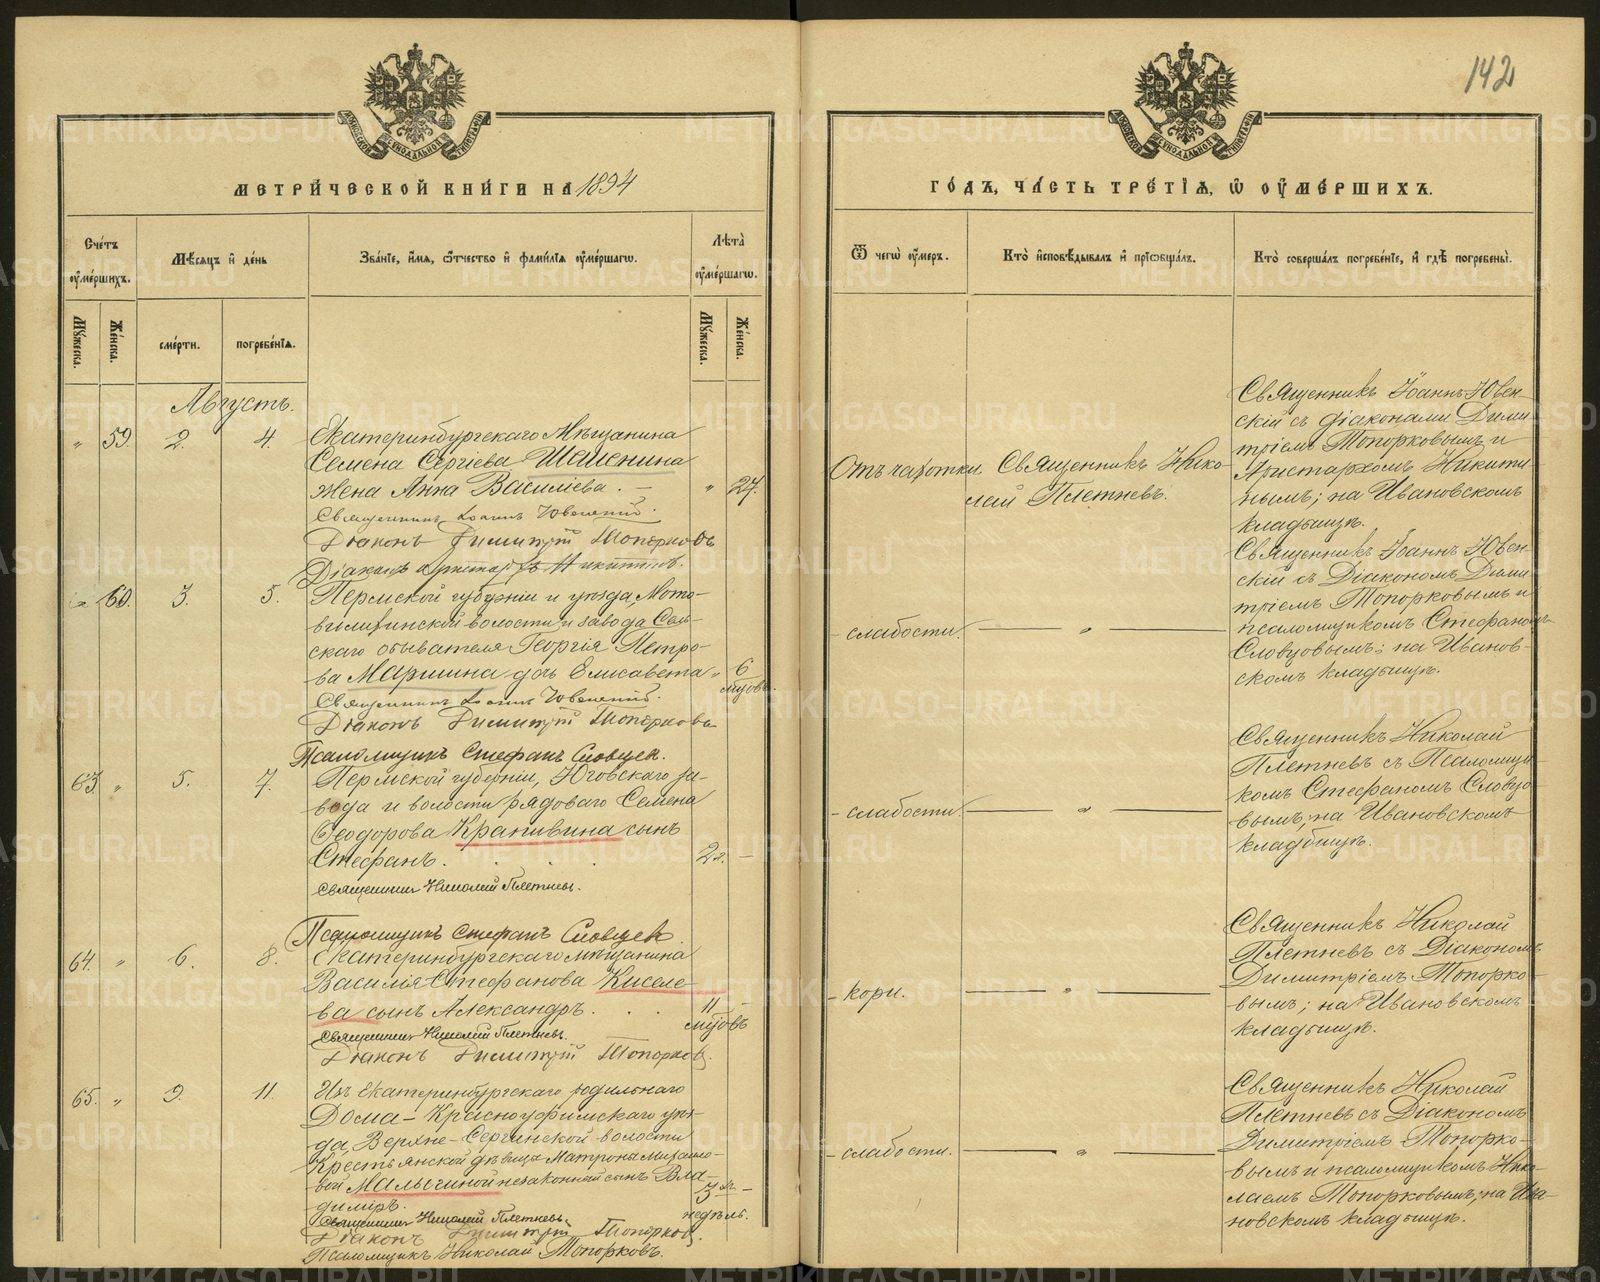 142
МЕТРИЧЕСКОЙ КНИГИ НА 1894
ГОДЪ, ЧАСТЬ ТРЕТІЯ, Ѿ ОУМЕРШИХЪ.
Счетъ оумершихъ.
Мѣсяцъ и день
Званіе, имя, ѿчество и фамилія оумершагѡ.
Лѣта оумершагѡ.
Ѿ чегѡ оумеръ.
Кто исповѣдывалъ и пріобщалъ.
Кто совершалъ погребеніе, и гдѣ погребены.
Мужеска.
Женска.
смерти.
погребенія.
Мужеска.
Женска.
Августъ.
" 59. 2. 4
Екатеринбургскаго Мѣщанина
Семена Сергіева Шешенина
жена Анна Василіева. —
" 27.
Священникъ Іоаннъ Ювенскій.
Діаконъ Димитрій Топорковъ
Діаконъ Аристархъ Никитинъ.
Отъ чахотки
Священникъ Нико-
лай Плетневъ.
Священникъ Іоаннъ Ювен-
скій съ діаконами Дими-
тріемъ Топорковымъ и
Аристархомъ Никити-
нымъ; на Ивановскомъ
кладбищѣ.
60. 3. 5.
Пермской губерніи и уѣзда, Мото-
вилихинской волости и завода Сель-
скаго обывателя Георгія Петро-
ва Маршина дочь Елисавета
" 6
мѣсцовъ.
Священникъ Іоаннъ Ювенскій.
Діаконъ Димитрій Топорковъ
Псаломщикъ Стефанъ Словцев.
- слабости.
— " —
Священникъ Іоаннъ Ювен-
скій съ Діакономъ Дими-
тріемъ Топорковымъ и
псаломщикомъ Стефаномъ
Словцовымъ; на Иванов-
скомъ кладбищѣ.
63. " 5. 7.
Пермской губерніи, Юговскаго за-
вода и волости рядоваго Семена
Ѳеодорова Крапивина сынъ
Стефанъ. . . . .
2г. —
Священникъ Николай Плетневъ.
Псаломщикъ Стефанъ Словцев
- слабости.
— " —
Священникъ Николай
Плетневъ съ Псаломщи-
комъ Стефаномъ Словцо-
вымъ; на Ивановскомъ
кладбищѣ.
64. " 6. 8.
Екатеринбургскаго мѣщанина
Василія Стефанова Киселе-
ва сынъ Александръ. . .
11 —
мѣсцовъ
Священникъ Николай Плетневъ.
Діаконъ Димитрій Топорковъ.
- кори.
— " —
Священникъ Николай
Плетневъ съ Діакономъ
Димитріемъ Топорко-
вымъ; на Ивановскомъ
кладбищѣ.
65. " 9. 11.
Изъ Екатеринбургскаго родильнаго
Дома — Красноуфимскаго уѣз-
да, Верхне-Сергинской волости
Крестьянской дѣвицы Матроны Михайло-
вой Малыгиной незаконный сынъ Вла-
димиръ.
3 —
недѣль.
Священникъ Николай Плетневъ.
Діаконъ Димитрій Топорковъ.
Псаломщикъ Николай Топорковъ.
- слабости.
— " —
Священникъ Николай
Плетневъ съ Діакономъ
Димитріемъ Топорко-
вымъ и псаломщикомъ Нико-
лаемъ Топорковымъ; на Ива-
новскомъ кладбищѣ.